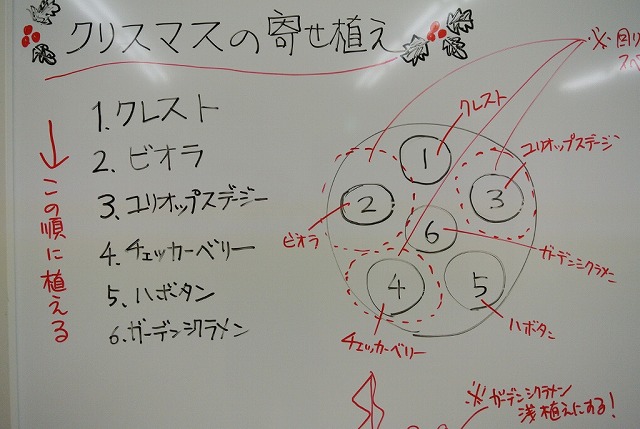 クリスマスの寄せ植え
↓この順に植える
1.クレスト
2.ビオラ
3.ユリオップスデージー
4.チェッカーベリー
5.ハボタン
6.ガーデンシクラメン
※回り
スペ
クレスト
ユリオップスデージン
ビオラ
ガーデンシクラメン
チェッカーベリー
ハボタン
1
2
3
6
4
5
※ガーデンシクラメン
浅植えにする!